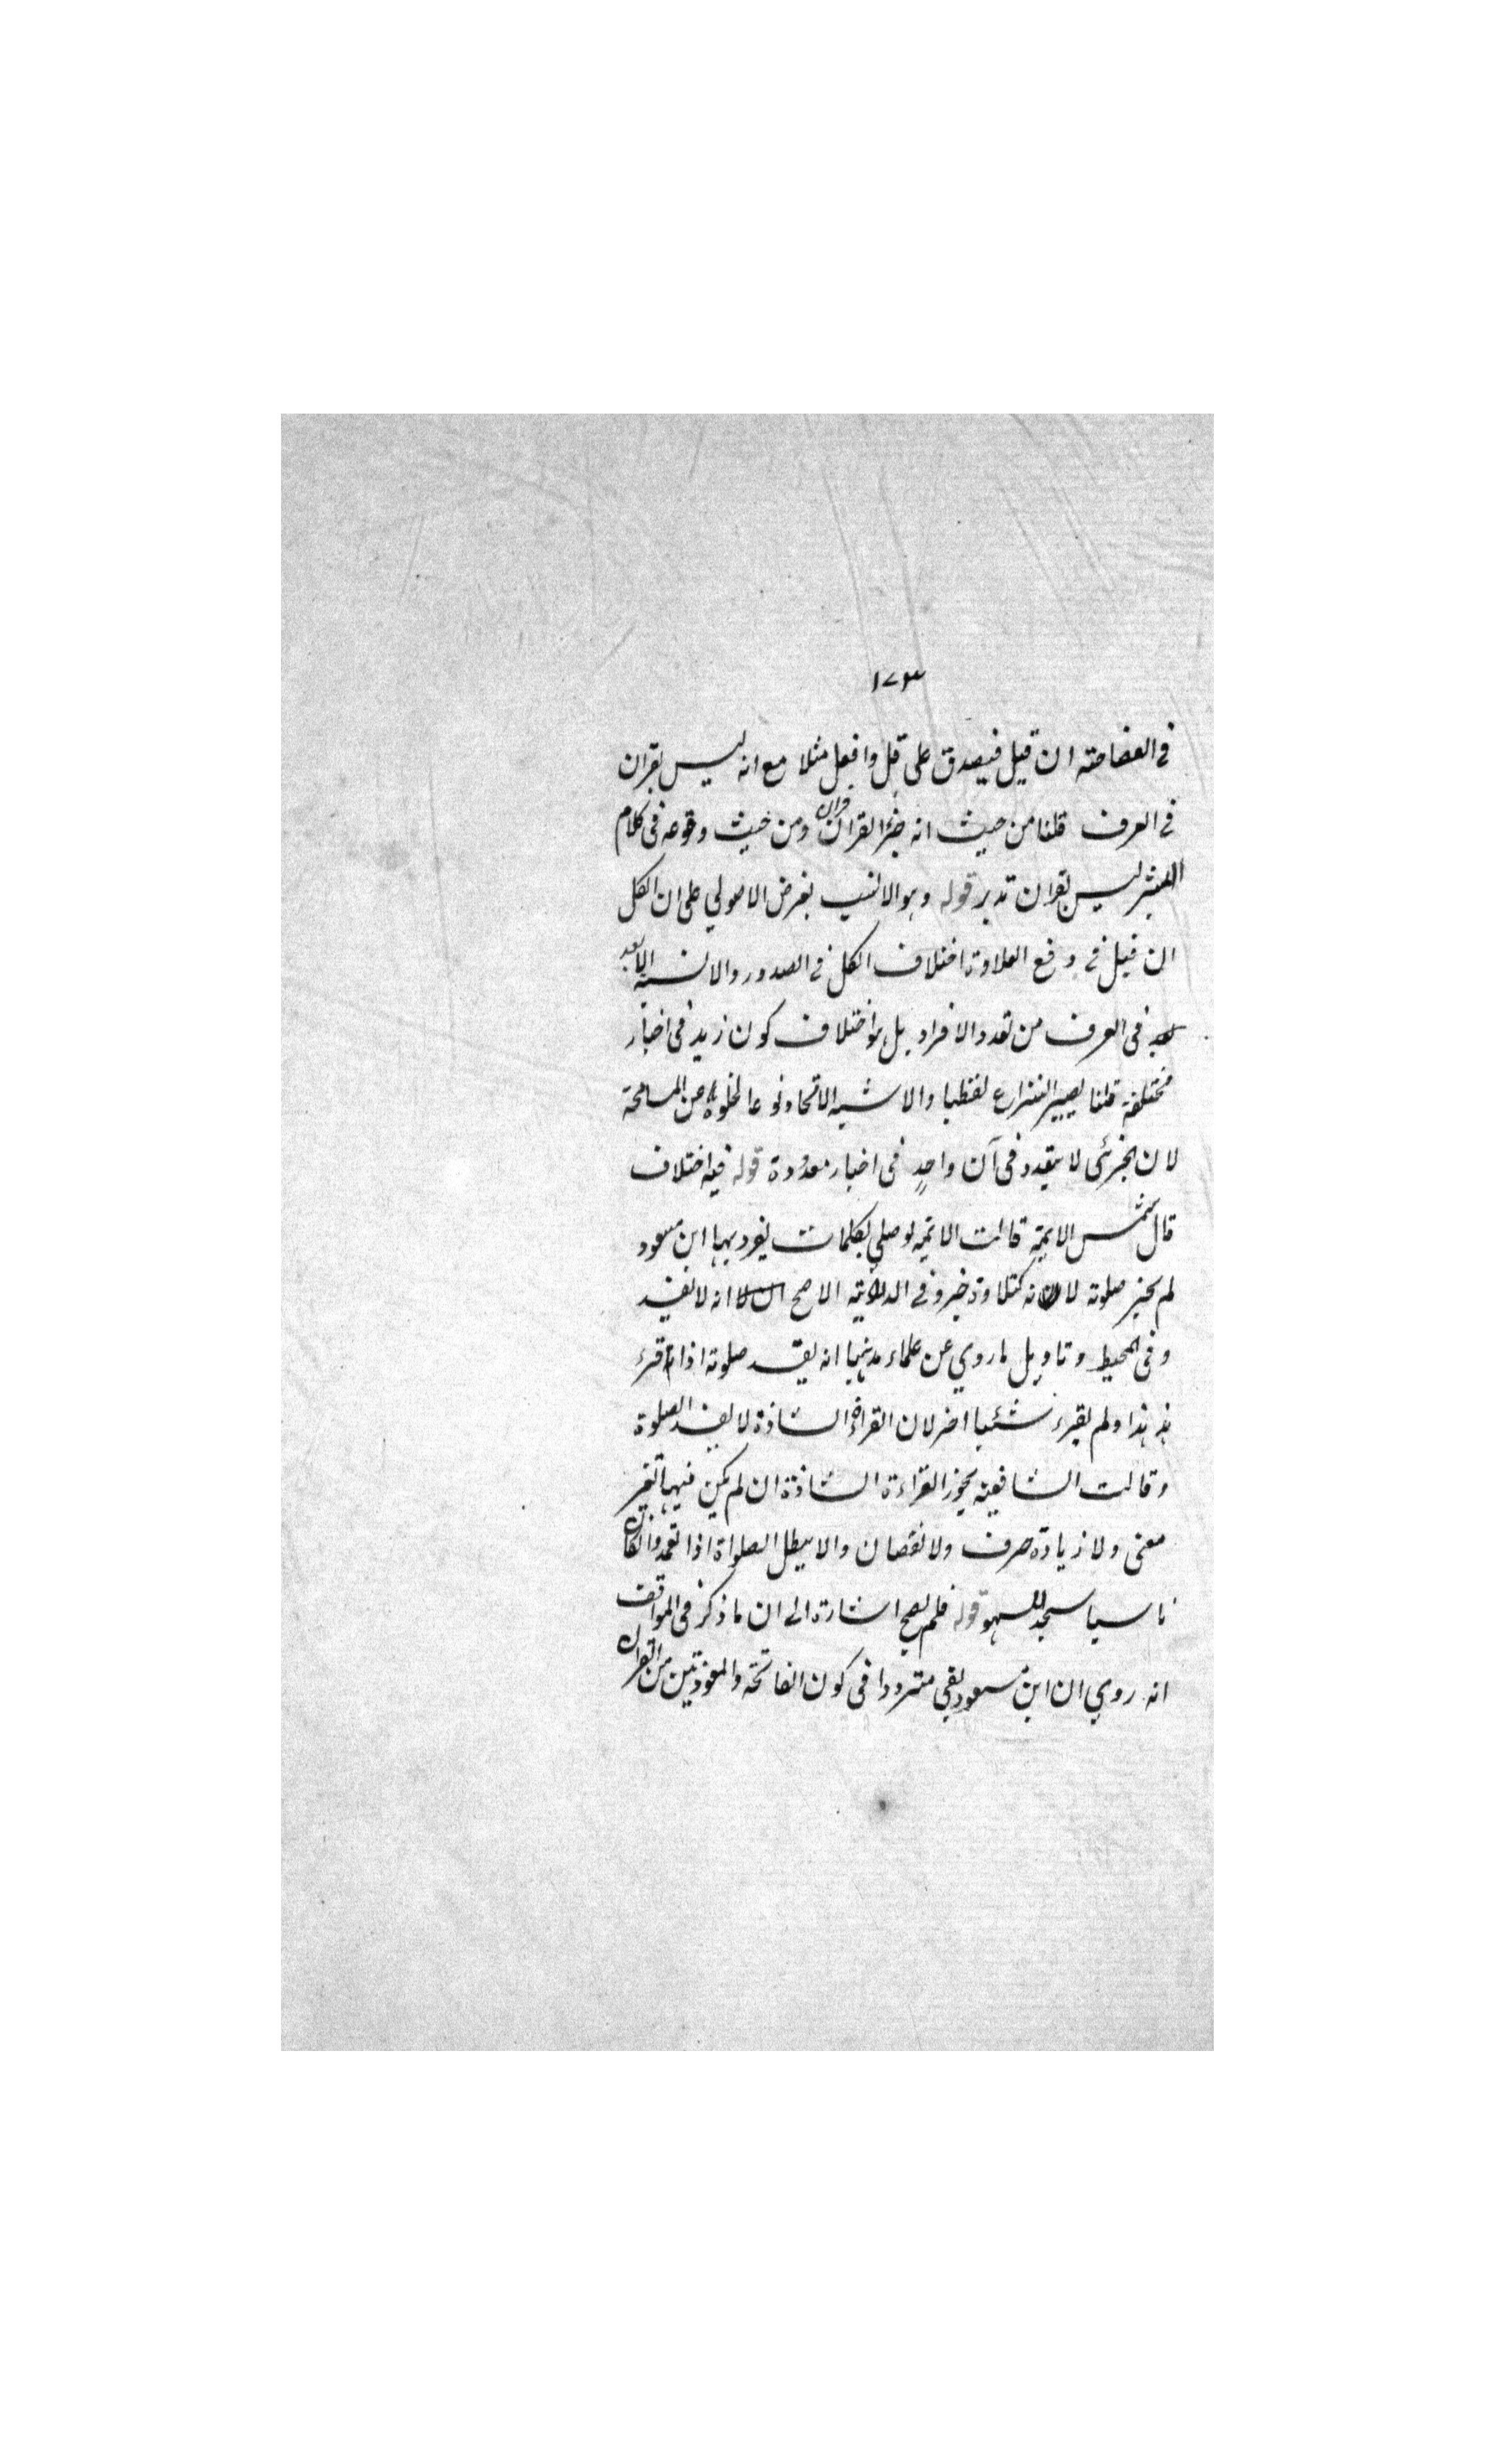 ١٧٣
فى الفصاحة ان قيل فيصدق على قل وافعل مثلا مع انه ليس بقران
فى العرف قلنا من حيث انه جزء القران قران ومن حيث وقوعه فى كلام
البشر ليس بقران تدبر قوله وهو الانسب بغرض الاصولي على ان الكل
ان قيل فى دفع العلاوة اختلاف الكل فى الصدور والالسنة لا يعد
فى العرف من تعدد الافراد بل هو اختلاف كون زيد فى اخبار
مختلفة قلنا يصير النزاع لفظيا والاشبه الاتحاد نوعا لخلوه عن المسامحة
لان الجزئى لا يتعدد فى آن واحدٍ فى اخبار معدودة قوله فيه اختلاف
قال شمس الايمة قالت الايمة لو صلي بكلمات تفرد بها ابن مسعود
لم يجز صلوته لانه كتلاوة خبر وفى الدراية الاصح انه لا تفسد
وفى المحيط وتاويل ما روي عن علماءنا انه تفسد صلوته اذا قرء
هذا ولم يقرء شئيا اخر لان القراءة الشاذة لا تفسد الصلوة
وقالت الشافعية يجوز القراءة الشاذة ان لم يكن فيها تغير
معنى ولا زيادة حرف ولا نقصان والا يبطل الصلواة اذا تعمد وان كان
ناسيا سجد للسهو قوله فلم يصح اشارة الى ان ما ذكر فى المواقف
انه روي ان ابن مسعود بقي مترددا فى كون الفاتحة والمعوذتين من القران